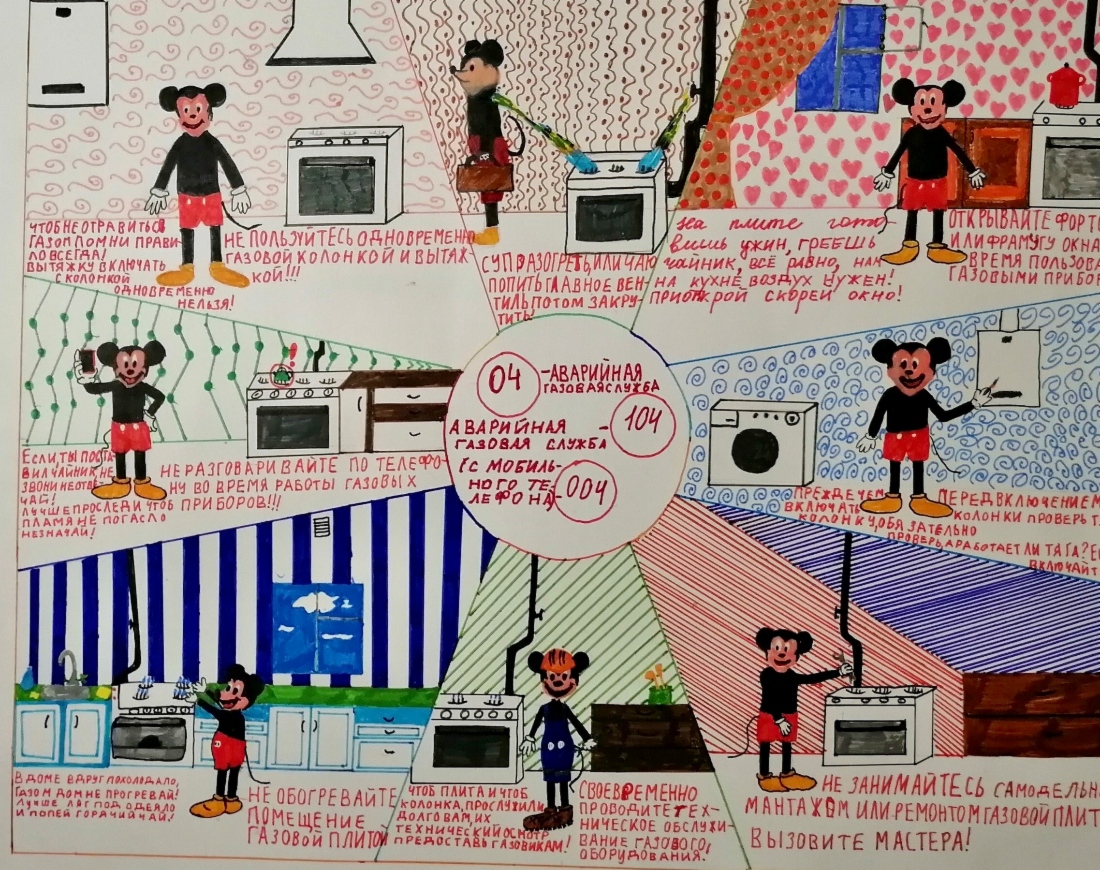 ЧТОБ НЕ ОТРАВИТЬСЯ
ГАЗОМ ПОМНИ ПРАВИ-
ЛО ВСЕГДА!
ВЫТЯЖКУ ВКЛЮЧАТЬ
С КОЛОНКОЙ
ОДНОВРЕМЕННО
НЕЛЬЗЯ!
НЕ ПОЛЬЗУЙТЕСЬ ОДНОВРЕМЕННО
ГАЗОВОЙ КОЛОНКОЙ И ВЫТЯЖ-
КОЙ!!!
СУП РАЗОГРЕТЬ, ИЛИ ЧАЮ
ПОПИТЬ ГЛАВНОЕ ВЕН-
ТИЛЬ ПОТОМ ЗАКРУ-
ТИТЬ!
На плите гото
вишь ужин, греешь
чайник, всё равно, нам
на кухне воздух нужен!
приоткрой скорей окно!
ОТКРЫВАЙТЕ ФОРТО
ИЛИ ФРАМУГУ ОКНА
ВРЕМЯ ПОЛЬЗОВА
ГАЗОВЫМИ ПРИБОР
04 -АВАРИЙНАЯ
ГАЗОВАЯ СЛУЖБА
АВАРИЙНАЯ
ГАЗОВАЯ СЛУЖБА - 104
(С МОБИЛЬ-
НОГО ТЕ-
ЛЕФОНА)-004
ЕСЛИ, ТЫ ПОСТА
ВИЛ ЧАЙНИК, НЕ
ЗВОНИ НЕ ОТВЕ-
ЧАЙ!
ЛУЧШЕ ПРОСЛЕДИ ЧТОБ
ПЛАМЯ НЕ ПОГАСЛО
НЕЗНАЧАЙ!
НЕ РАЗГОВАРИВАЙТЕ ПО ТЕЛЕФО-
НУ ВО ВРЕМЯ РАБОТЫ ГАЗОВЫХ
ПРИБОРОВ!!!
ПРЕЖДЕ ЧЕМ
ВКЛЮЧАТЬ
КОЛОНКУ, ОБЯЗАТЕЛЬНО
ПРОВЕРЬ, А РАБОТАЕТ ЛИ ТЯГА? ЕС
ВКЛЮЧАЙТ
ПЕРЕД ВКЛЮЧЕНИЕМ
КОЛОНКИ ПРОВЕРЬ Т
В ДОМЕ ВДРУГ ПОХОЛОДАЛО,
ГАЗОМ ДОМ НЕ ПРОГРЕВАЙ!
ЛУЧШЕ ЛЯГ ПОД ОДЕЯЛО
И ПОПЕЙ ГОРЯЧИЙ ЧАЙ!
НЕ ОБОГРЕВАЙТЕ
ПОМЕЩЕНИЕ
ГАЗОВОЙ ПЛИТОЙ
ЧТОБ ПЛИТА И ЧТОБ
КОЛОНКА, ПРОСЛУЖИЛИ
ДОЛГО ВАМ, ИХ
ТЕХНИЧЕСКИЙ ОСМОТР
ПРЕДОСТАВЬ ГАЗОВИКАМ!
СВОЕВРЕМЕННО
ПРОВОДИТЕ ТЕХ-
НИЧЕСКОЕ ОБСЛУЖИ-
ВАНИЕ ГАЗОВОГО
ОБОРУДОВАНИЯ.
НЕ ЗАНИМАЙТЕСЬ САМОДЕЛЬН
МАНТАЖОМ ИЛИ РЕМОНТОМ ГАЗОВОЙ ПЛИТ
ВЫЗОВИТЕ МАСТЕРА!